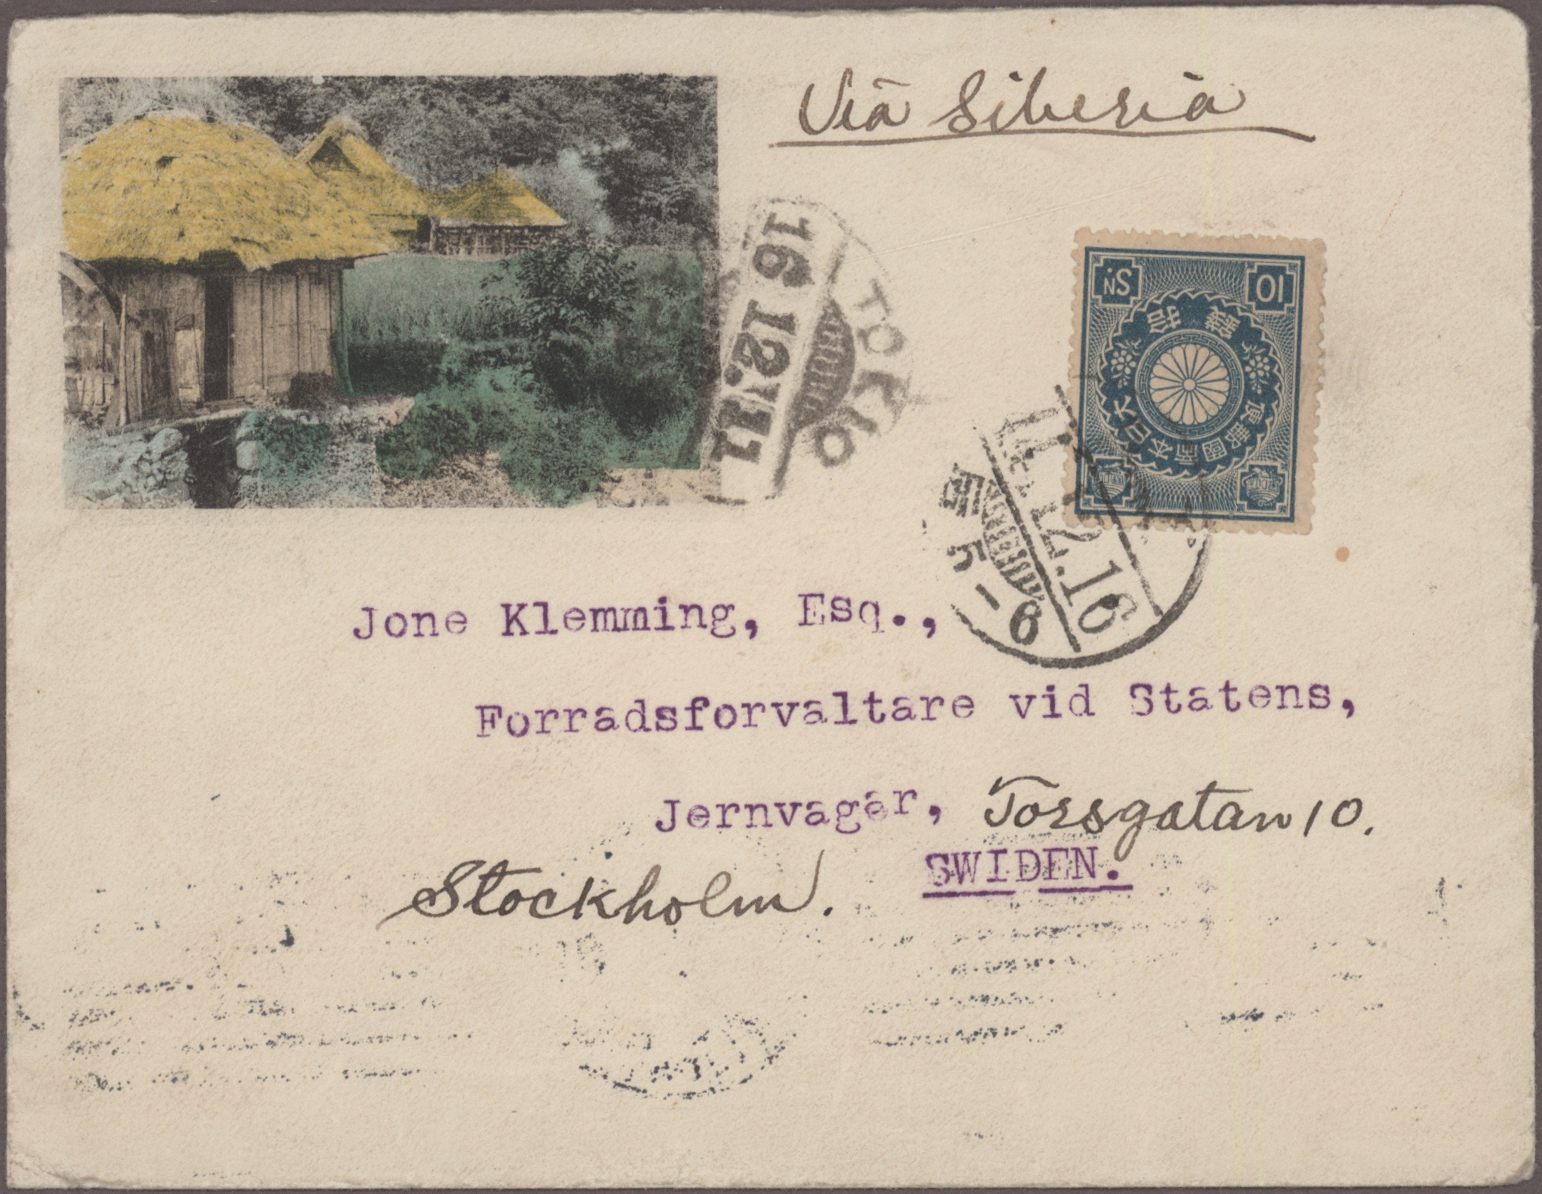 Via Siberia
TOKIO
16.12.11
10
SN
大日本帝國郵便
拾錢
12.16
Jone Klemming, Esq.,
Forradsforvaltare vid Statens,
Jernvagar, Torsgatan 10.
SWIDEN.
Stockholm.